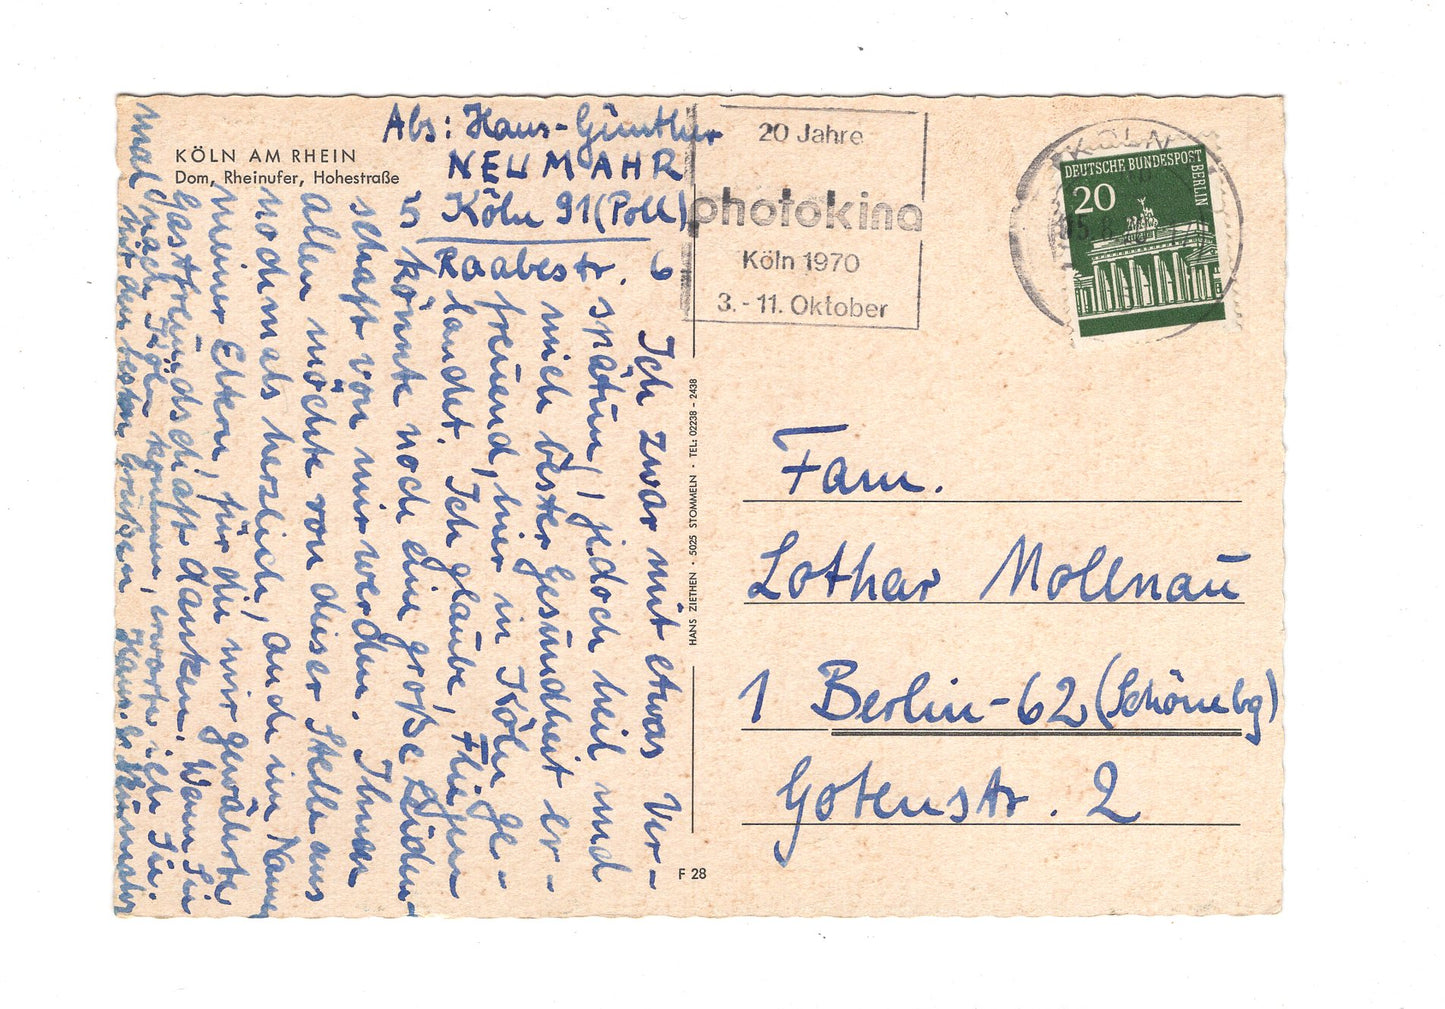 KÖLN AM RHEIN
Dom, Rheinufer, Hohestraße
Abs: Hans-Günther
NEUMAHR
5 Köln 91 (Poll)
Raabestr. 6
Ich zwar mit etwas Ver-
spätun, jedoch heil und
mich bester Gesundheit er-
freuend, hier in Köln ge-
landet. Ich glaube, Fliegen
könnte noch eine große Leiden-
schaft von mir werden. Ihnen
allen möchte von dieser Stelle aus
nochmals herzlich, auch im Namen
meiner Eltern, für die mir gewährte
Gastfreundschaft danken. Wann Sie
mal nach Köln kommen, warte ich Sie.
Mit den besten Grüßen Hans-G. Neumahr
HANS ZIETHEN · 5025 STOMMELN · TEL: 02238 - 2438
F 28
20 Jahre
photokina
Köln 1970
3. - 11. Oktober
KÖLN
DEUTSCHE BUNDESPOST
BERLIN
20
Fam.
Lothar Mollnau
1 Berlin-62 (Schönebg)
Gotenstr. 2